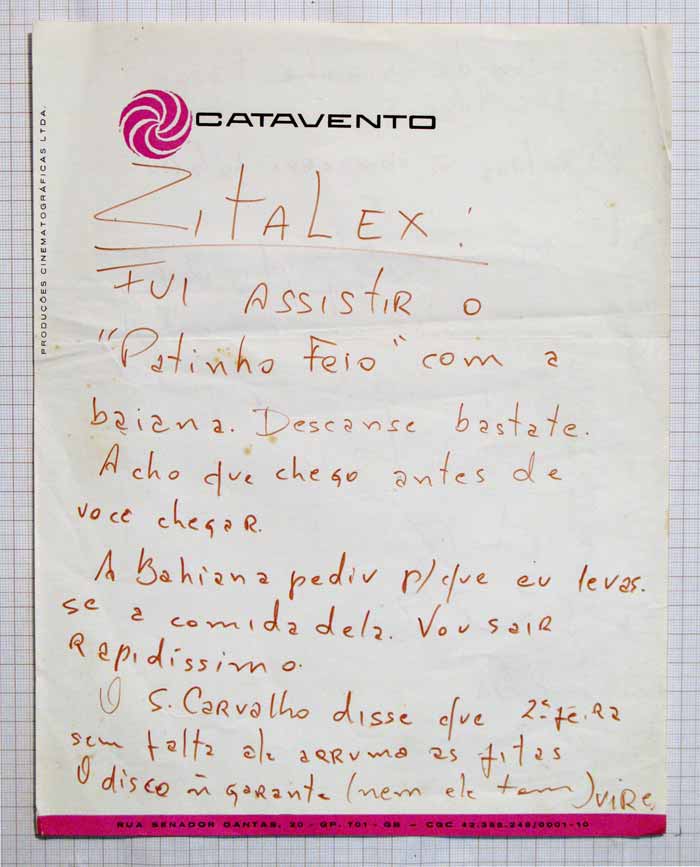 CATAVENTO
PRODUÇÕES CINEMATOGRÁFICAS LTDA.
ZITALEX:
FUI ASSISTIR O
"Patinho Feio" com a
baiana. Descanse bastate.
Acho que chego antes de
voce chegar.
A Bahiana pediu p/ que eu levas-
se a comida dela. Vou sair
Rapidíssimo.
O S. Carvalho disse que 2ª feira
sem falta ele arruma as fitas
O disco ñ garante (nem ele tem) vire
RUA SENADOR DANTAS, 20 - GP. 701 - GB - CGC 42.